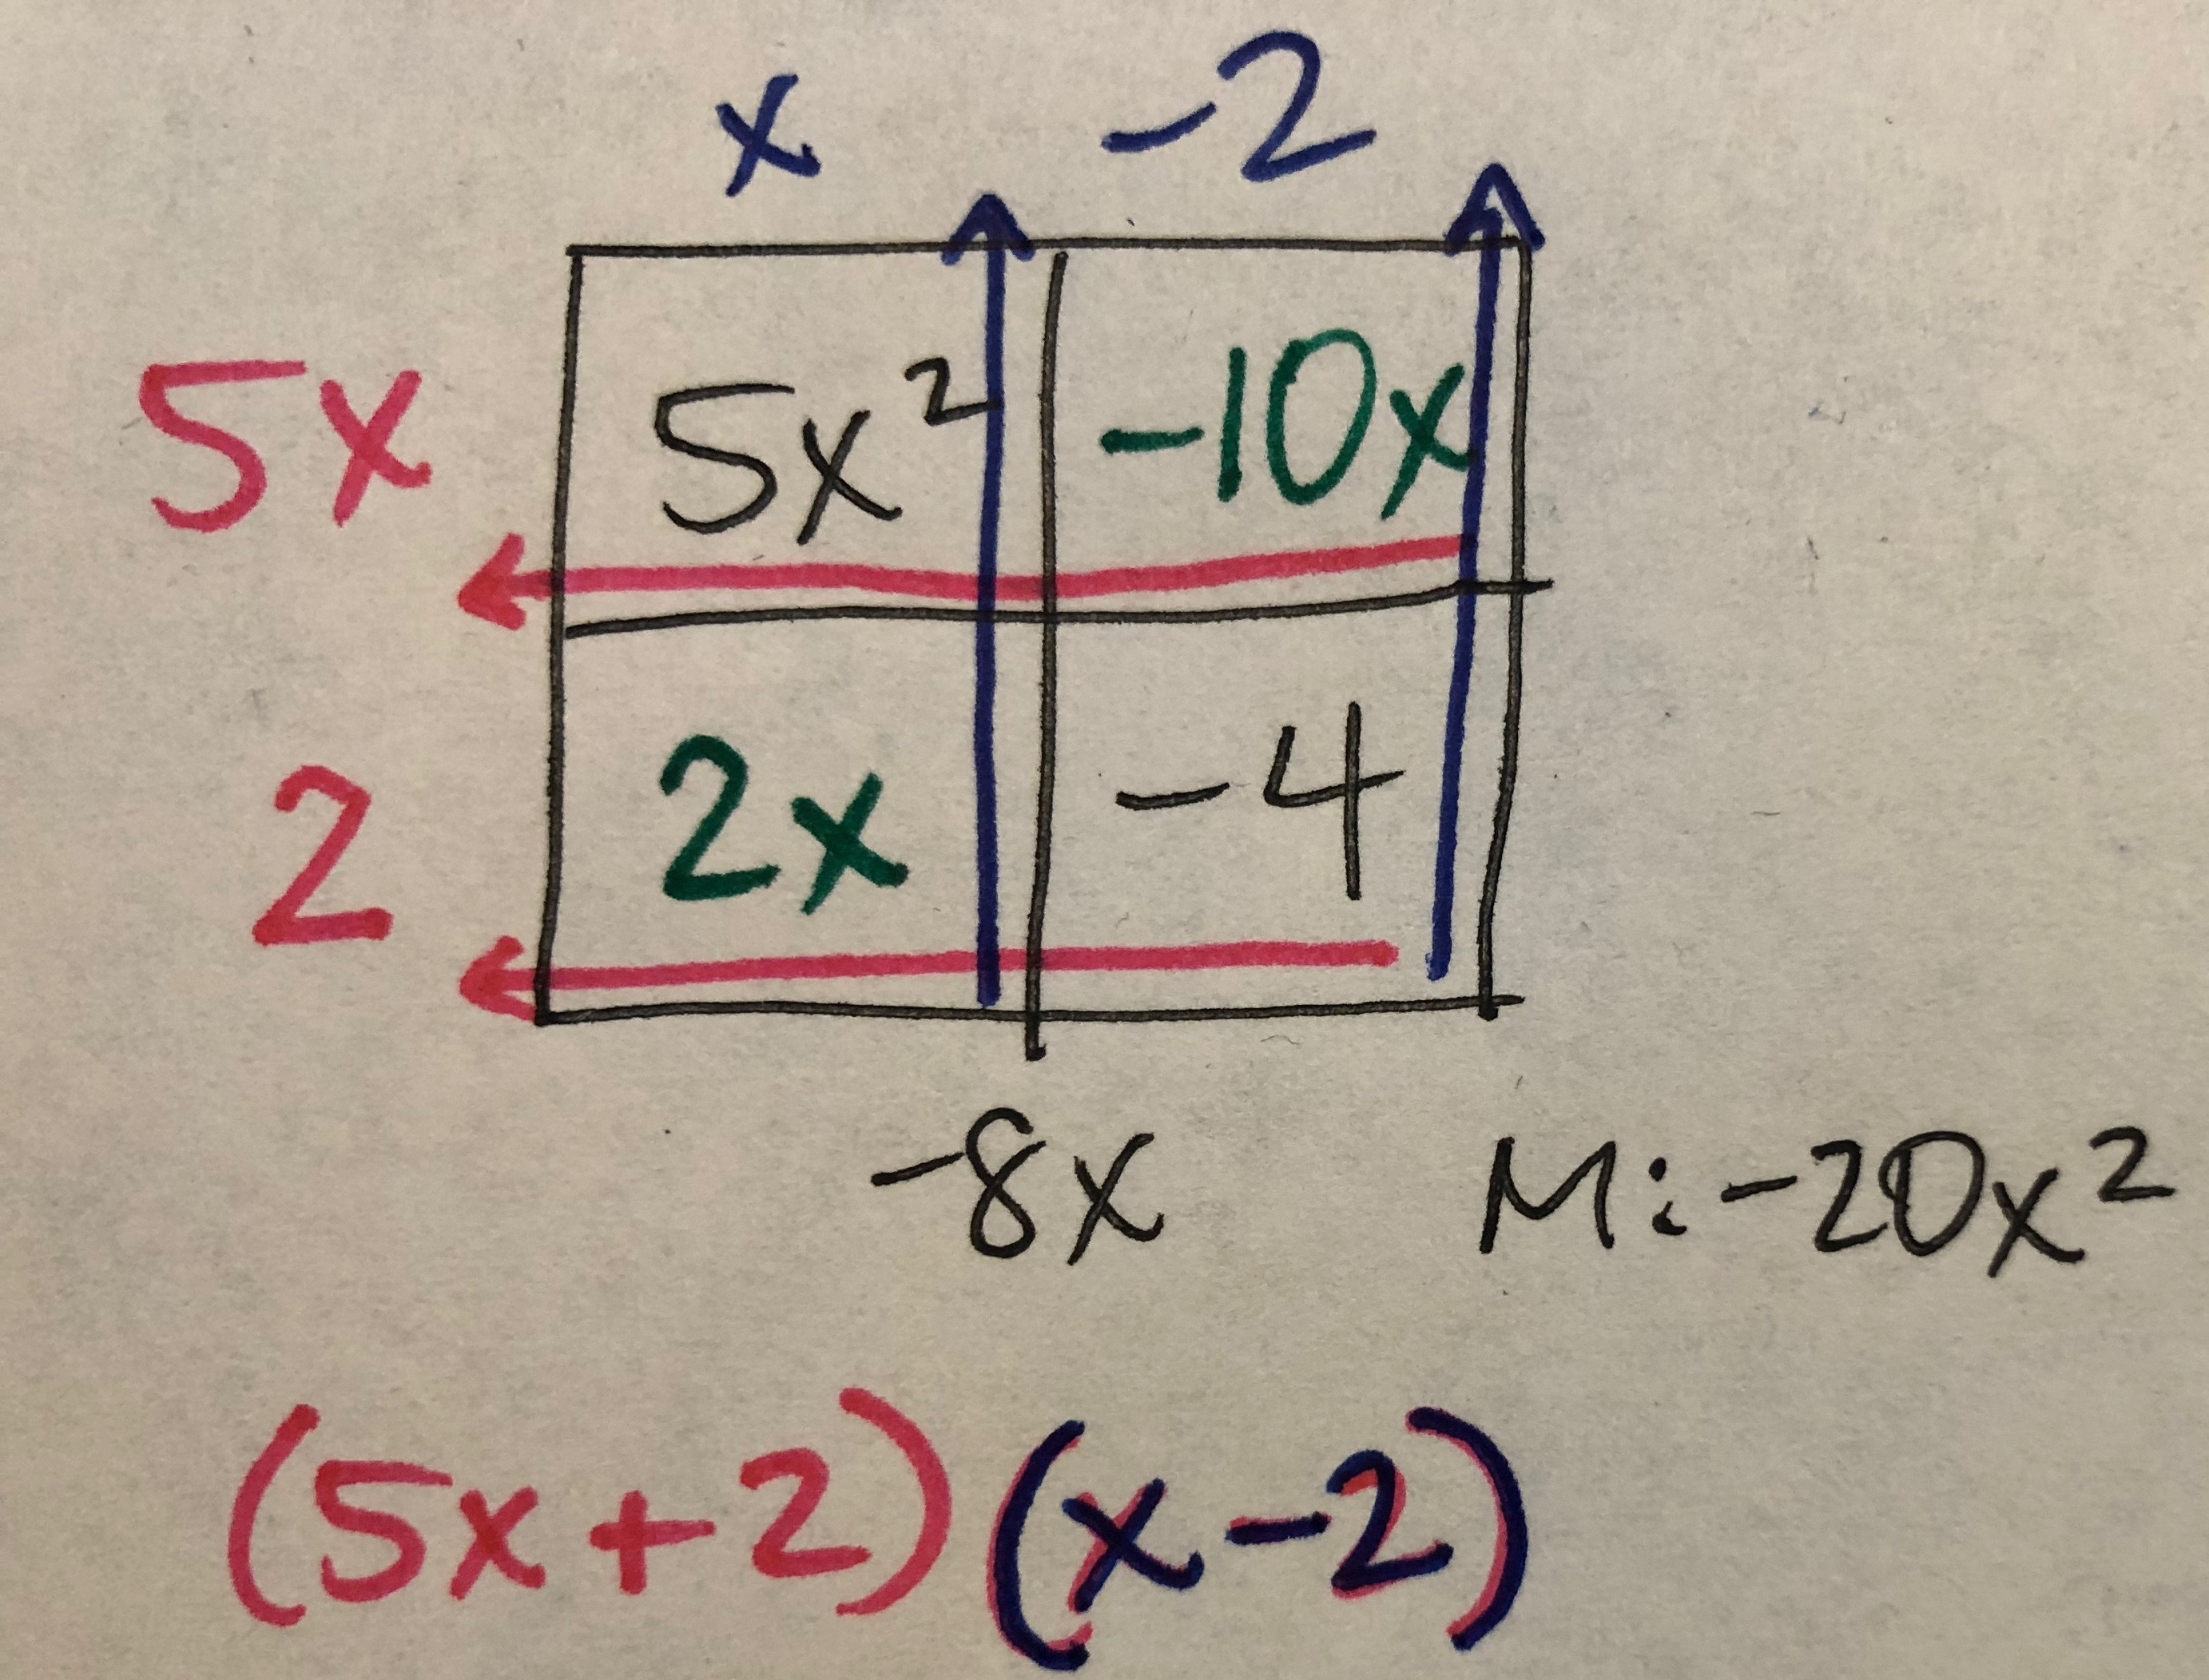 x -2
5x 5x² -10x
2 2x -4
-8x M: -20x²
(5x+2)(x-2)